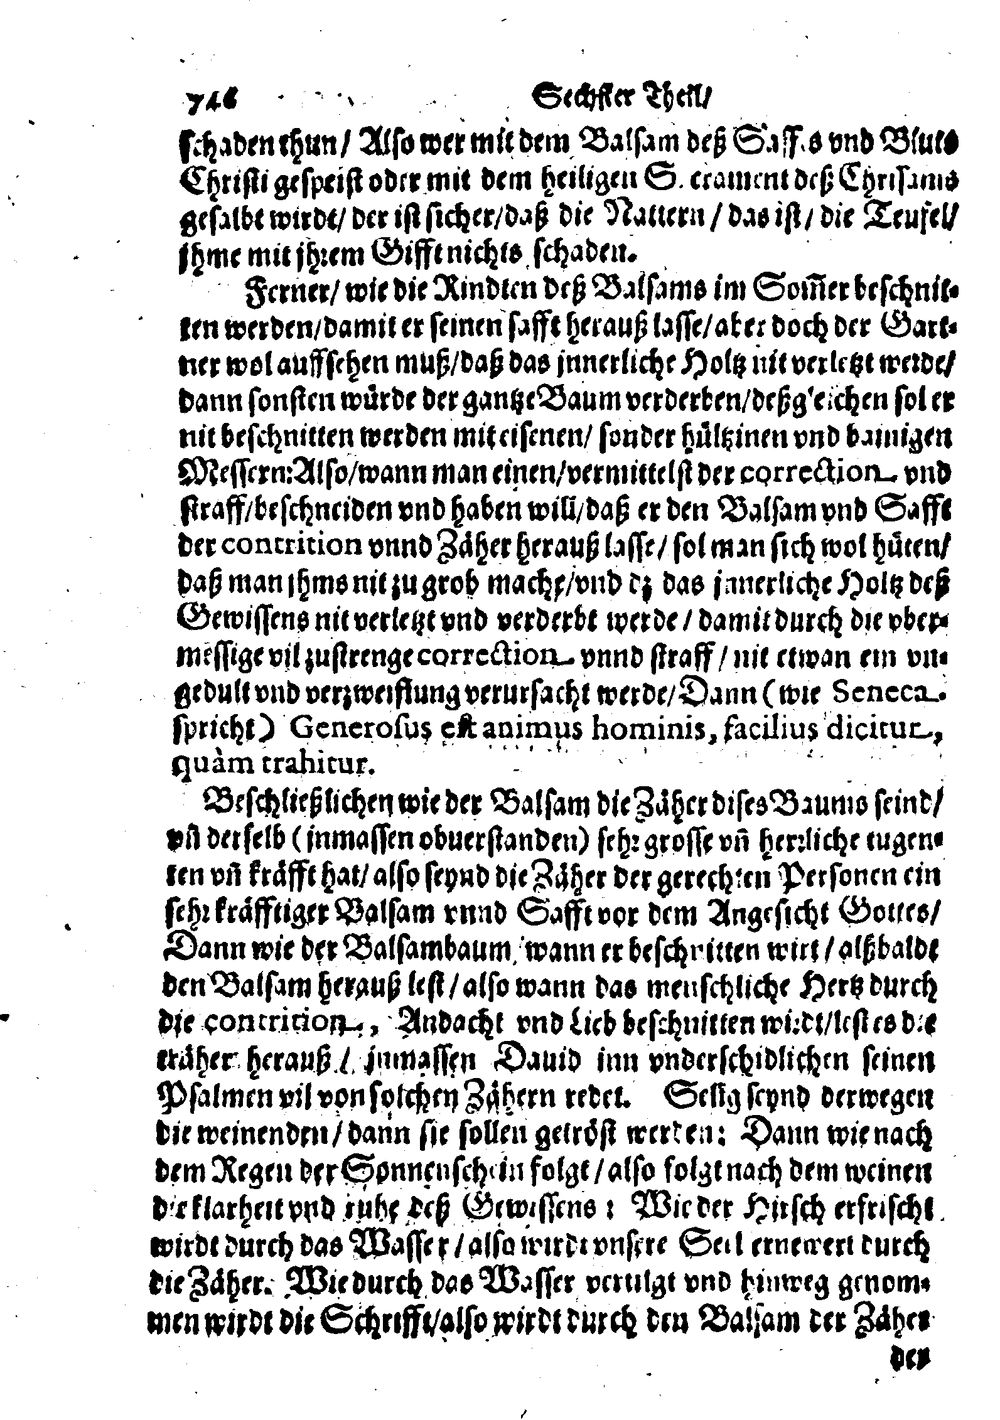 746 Sechster Theil/
schaden thun/ Also wer mit dem Balsam deß Saffts vnd Bluts
Christi gespeist oder mit dem heiligen Sacrament deß Chrisams
gesalbt wirdt/ der ist sicher/ daß die Nattern/ das ist/ die Teufel/
jhme mit jhrem Gifft nichts schaden.
Ferner/ wie die Rindten deß Balsams im Som̃er beschnit-
ten werden/ damit er seinen safft herauß lasse/ aber doch der Gart-
ner wol auffsehen muß/ daß das jnnerliche Holtz nit verletzt werde/
dann sonsten würde der gantze Baum verderben/ deßgleichen sol er
nit beschnitten werden mit eisenen/ sonder hültzinen vnd bainigen
Messern: Also/ wann man einen/ vermittelst der correction vnd
straff/ beschneiden vnd haben will/ daß er den Balsam vnd Safft
der contrition vnnd Zäher herauß lasse/ sol man sich wol hüten/
daß man jhms nit zu grob mache/ vnd dz das jnnerliche Holtz deß
Gewissens nit verletzt vnd verderbt werde/ damit durch die vber-
messige vil zustrenge correction vnnd straff/ nit etwan ein vn-
gedult vnd verzweiflung verursacht werde/ Dann (wie Seneca
spricht) Generosus est animus hominis, facilius dicitur,
quàm trahitur.
Beschließlichen wie der Balsam die Zäher dises Baums seind/
vñ derselb (jnmassen obuerstanden) sehr grosse vñ herrliche tugen-
ten vñ kräfft hat/ also seynd die Zäher der gerechten Personen ein
sehr kräfftiger Balsam vnnd Safft vor dem Angesicht Gottes/
Dann wie der Balsambaum, wann er beschnitten wirt/ alßbaldt
den Balsam herauß lest/ also wann das menschliche Hertz durch
die contrition, Andacht vnd Lieb beschnitten wirdt/ lest es die
träher herauß/ jnmassen Dauid inn vnderschidlichen seinen
Psalmen vil von solchen Zähern redet. Selig seynd derwegen
die weinenden/ dann sie sollen getröst werden: Dann wie nach
dem Regen der Sonnenschein folgt/ also folgt nach dem weinen
die klarheit vnd ruhe deß Gewissens: Wie der Hirsch erfrischt
wirdt durch das Wasser/ also wirdt vnsere Seel ernewert durch
die Zäher. Wie durch das Wasser vertilgt vnd hinweg genom-
men wirdt die Schrifft/ also wirdt durch den Balsam der Zäher
der